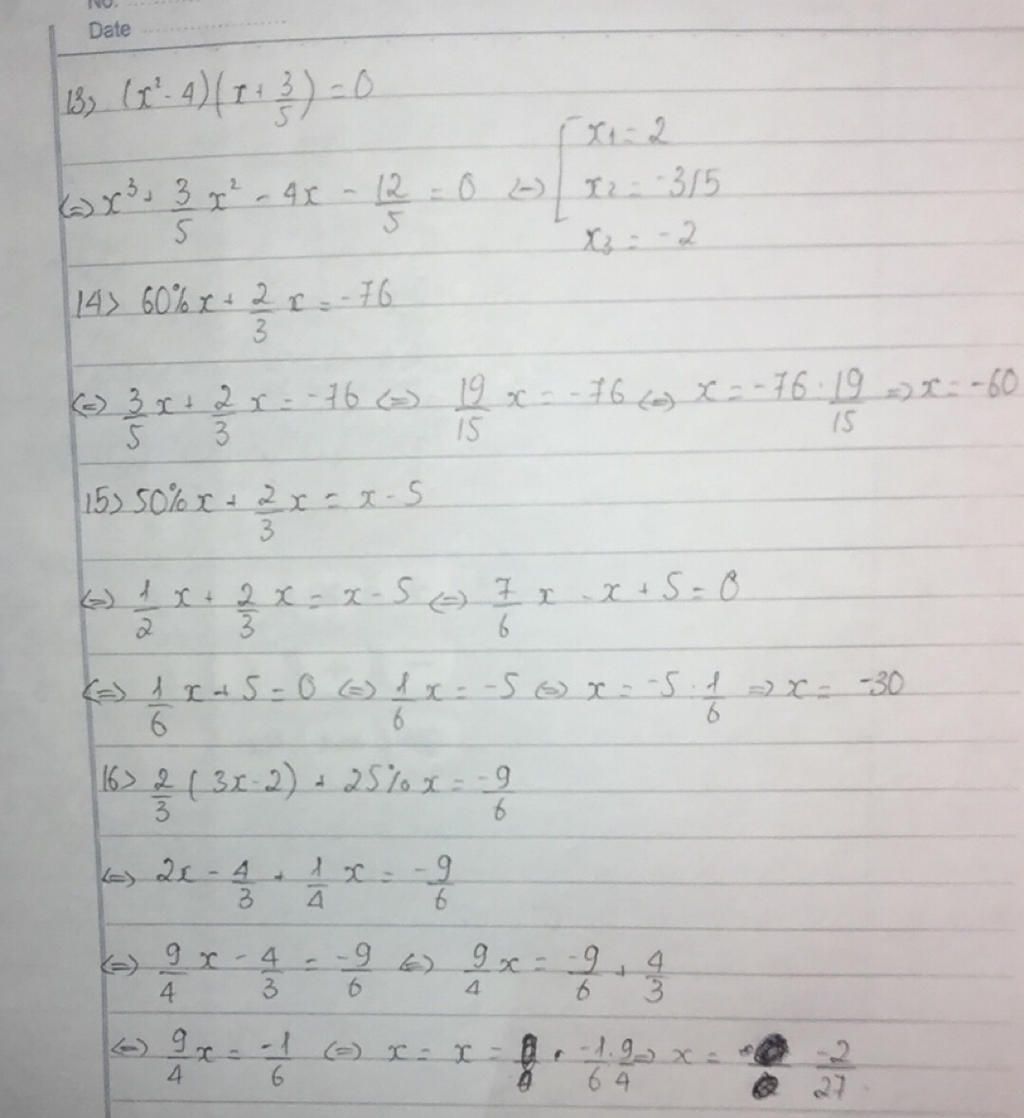 No.
Date
13) (x² - 4)(x + 3/5) = 0
⇔ x³ + 3/5 x² - 4x - 12/5 = 0 ⇔ [ x₁ = 2
x₂ = -3/5
x₃ = -2
14) 60%x + 2/3 x = -76
⇔ 3/5 x + 2/3 x = -76 ⇔ 19/15 x = -76 ⇔ x = -76 · 19/15 ⇒ x = -60
15) 50%x + 2/3 x = x - 5
⇔ 1/2 x + 2/3 x = x - 5 ⇔ 7/6 x - x + 5 = 0
⇔ 1/6 x + 5 = 0 ⇔ 1/6 x = -5 ⇔ x = -5 · 1/6 ⇒ x = -30
16) 2/3 (3x - 2) + 25%x = -9/6
⇔ 2x - 4/3 + 1/4 x = -9/6
⇔ 9/4 x - 4/3 = -9/6 ⇔ 9/4 x = -9/6 + 4/3
⇔ 9/4 x = -1/6 ⇔ x = x = -1/6 · 9/4 ⇒ x = -2/27